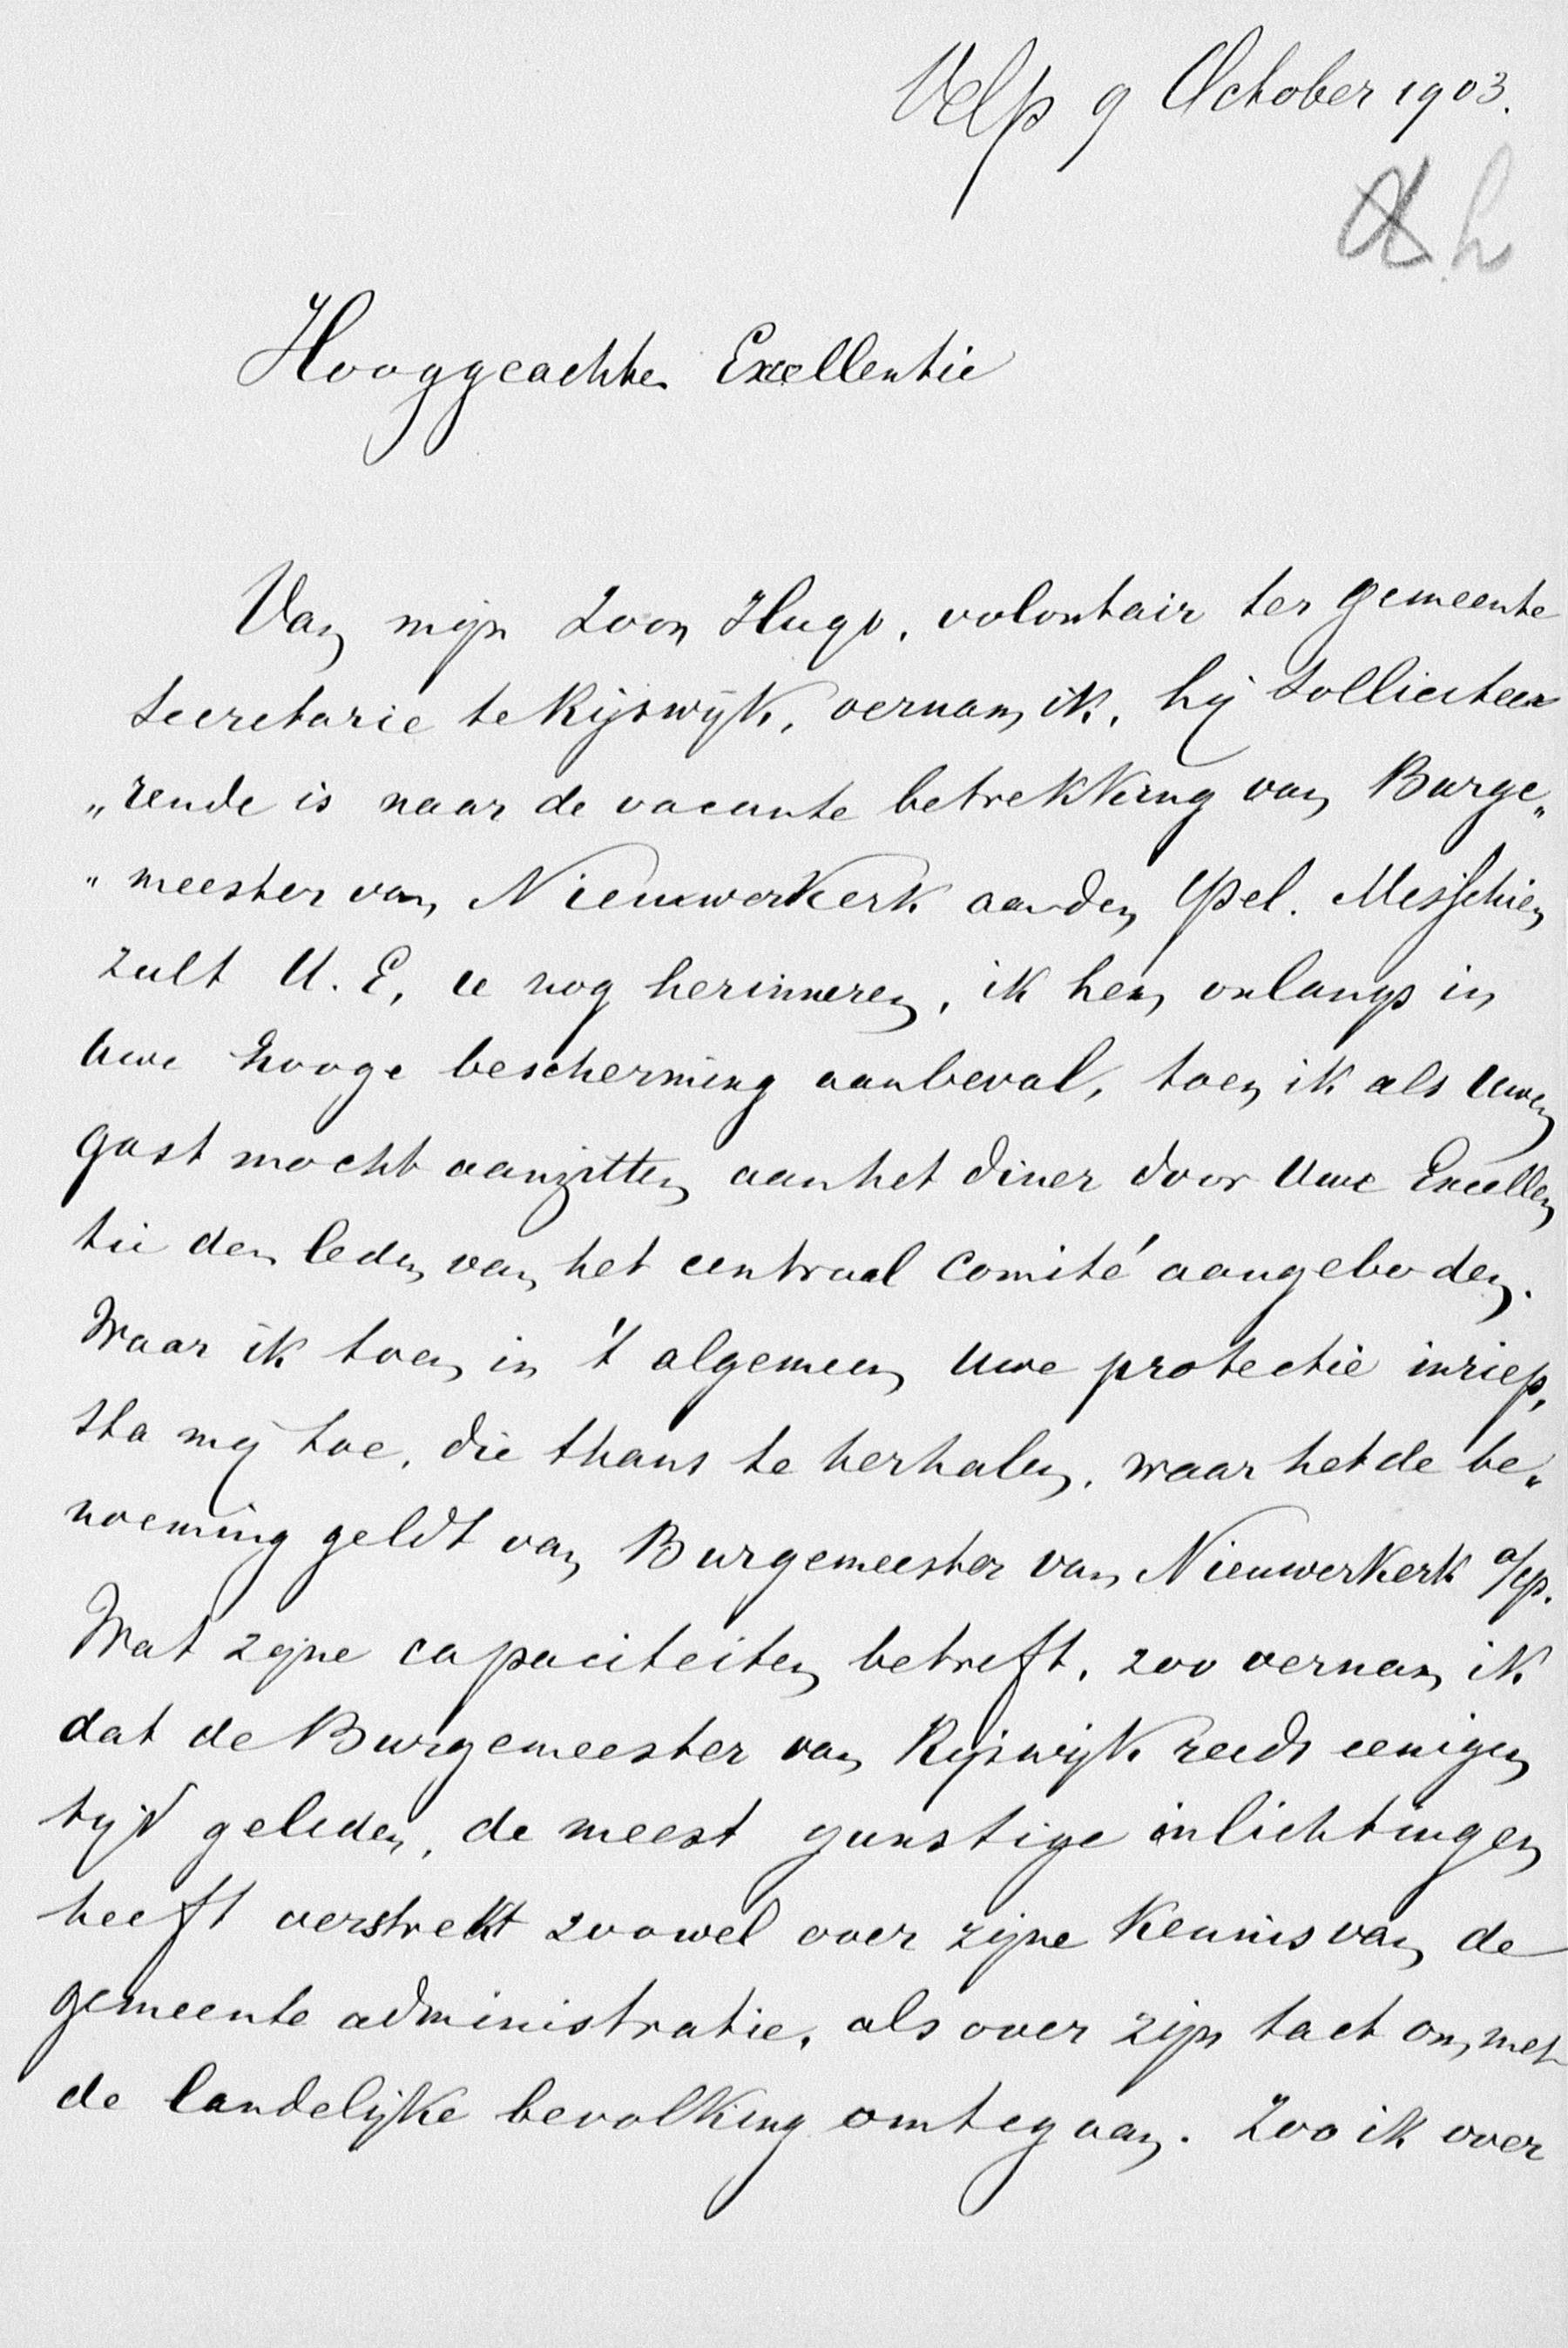 Velp 9 October 1903.
Hooggeachte Excellentie
Van mijn Zoon Hugo, volontair ter gemeente
secretarie te Rijswijk, vernam ik, hij solliciteer
„rende is naar de vacante betrekking van Burge„
„meester van Nieuwerkerk aan den IJsel. Misschien
zult U. E, u nog herinneren, ik hem onlangs in
Uwe hooge bescherming aanbeval, toen ik als Uwen
gast mocht aanzitten aan het diner door Uwe Excellen
tie den leden van het centraal Comité aangeboden.
Waar ik toen in 't algemeen Uwe protectie inriep,
sta mij toe, die thans te herhalen, waar het de be„
noeming geldt van Burgemeester van Nieuwerkerk a/ijs.
Wat zijne capaciteiten betreft, zoo vernam ik
dat de Burgemeester van Rijswijk reeds eenigen
tijd geleden, de meest gunstige inlichtingen
heeft verstrekt zoowel over zijne kennis van de
gemeente administratie, als over zijn tact om, met
de landelijke bevolking omtegaan. Zoo ik over